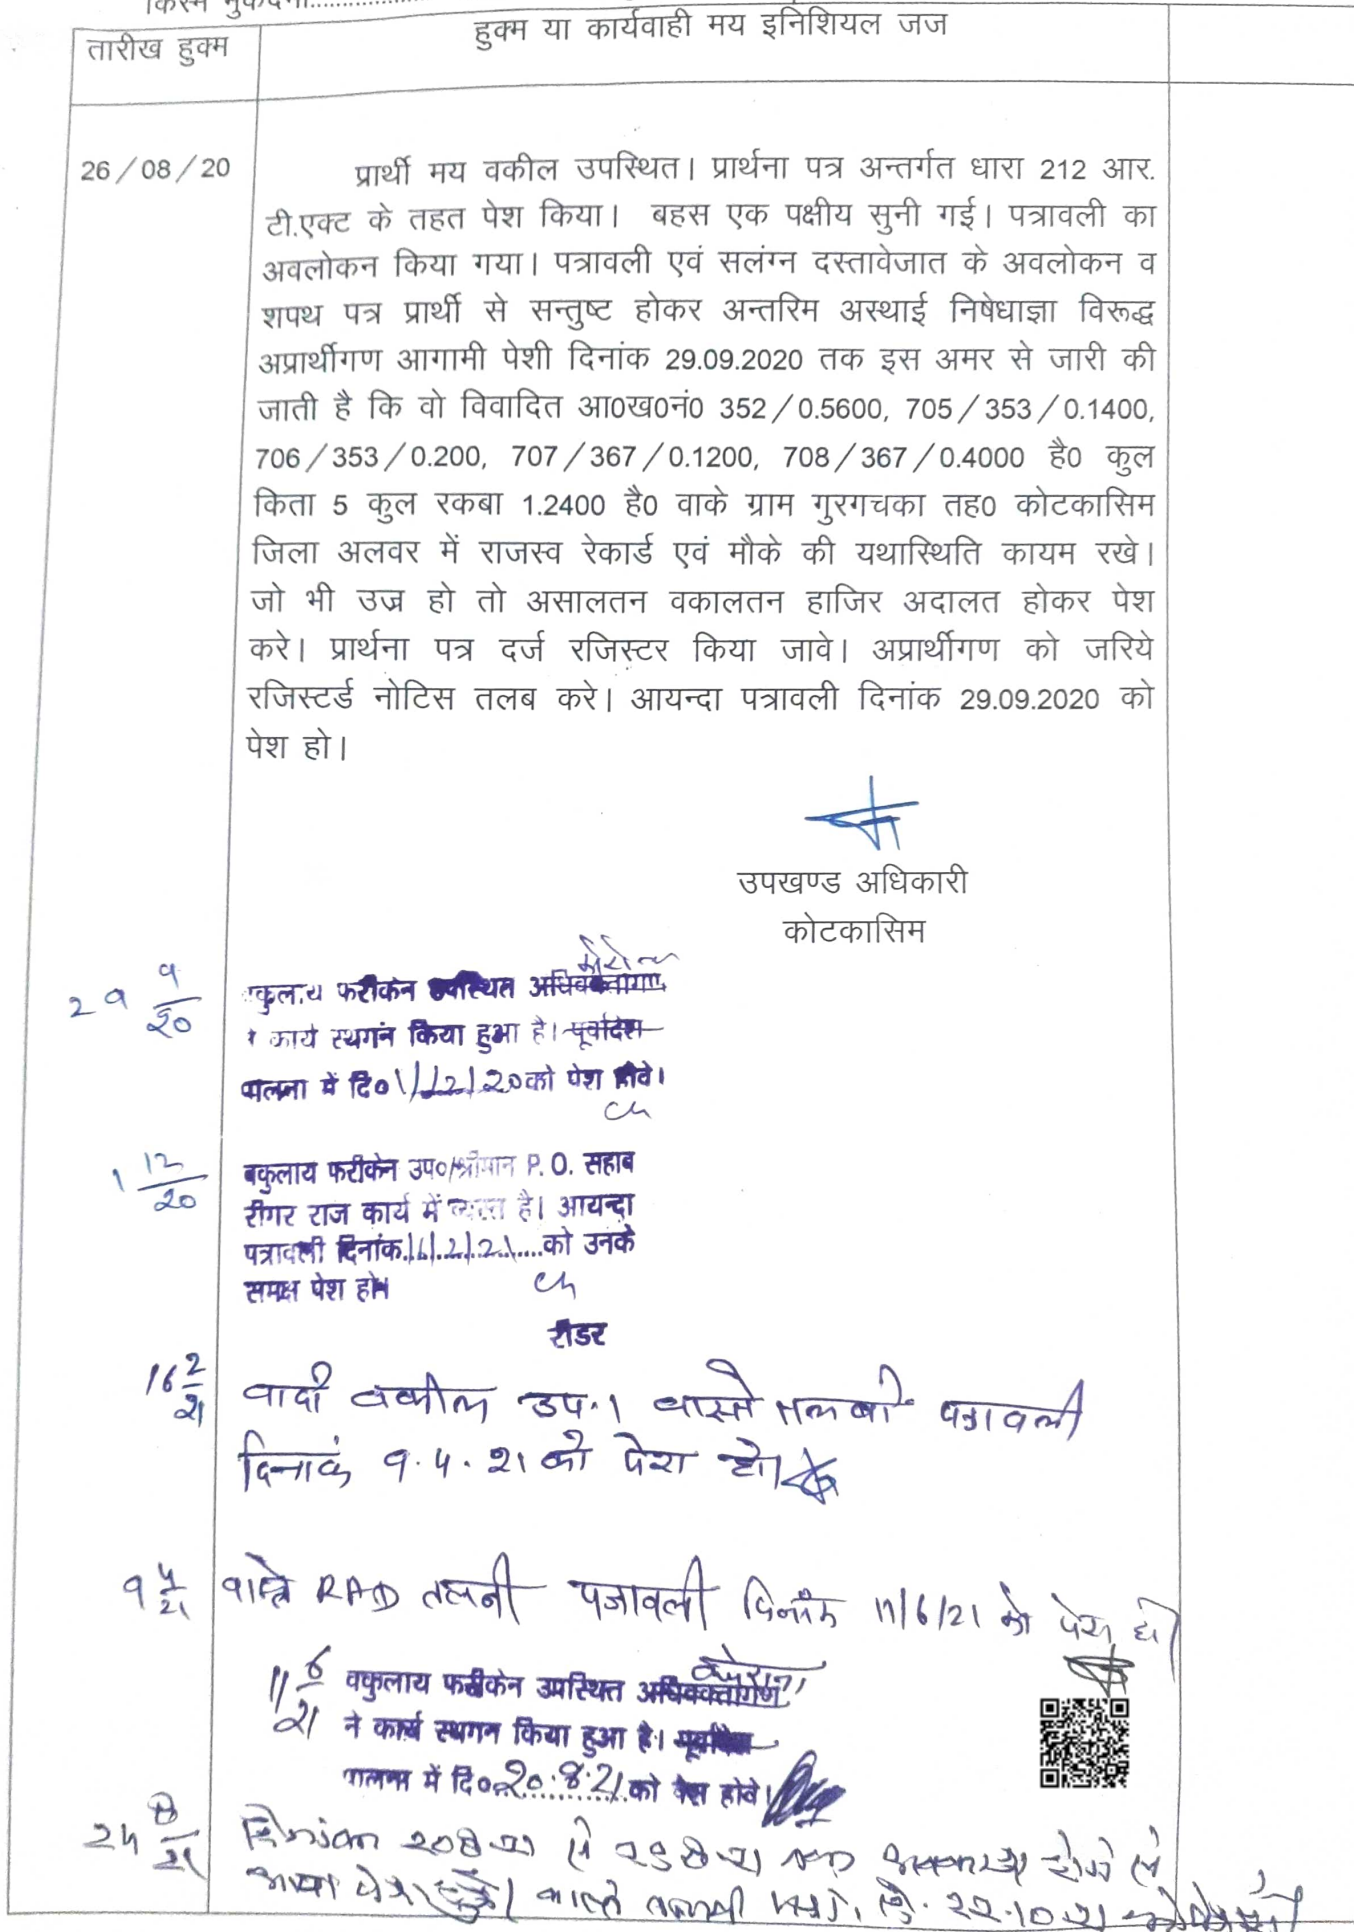 किस्म मुकदमा
तारीख हुक्म
हुक्म या कार्यवाही मय इनिशियल जज
26/08/20
प्रार्थी मय वकील उपस्थित। प्रार्थना पत्र अन्तर्गत धारा 212 आर.
टी.एक्ट के तहत पेश किया। बहस एक पक्षीय सुनी गई। पत्रावली का
अवलोकन किया गया। पत्रावली एवं सलंग्न दस्तावेजात के अवलोकन व
शपथ पत्र प्रार्थी से सन्तुष्ट होकर अन्तरिम अस्थाई निषेधाज्ञा विरूद्ध
अप्रार्थीगण आगामी पेशी दिनांक 29.09.2020 तक इस अमर से जारी की
जाती है कि वो विवादित आ0ख0नं0 352/0.5600, 705/353/0.1400,
706/353/0.200, 707/367/0.1200, 708/367/0.4000 है0 कुल
किता 5 कुल रकबा 1.2400 है0 वाके ग्राम गुरगचका तह0 कोटकासिम
जिला अलवर में राजस्व रेकार्ड एवं मौके की यथास्थिति कायम रखे।
जो भी उज्र हो तो असालतन वकालतन हाजिर अदालत होकर पेश
करे। प्रार्थना पत्र दर्ज रजिस्टर किया जावे। अप्रार्थीगण को जरिये
रजिस्टर्ड नोटिस तलब करे। आयन्दा पत्रावली दिनांक 29.09.2020 को
पेश हो।
उपखण्ड अधिकारी
कोटकासिम
29 9/20
वकुलाय फरीकेन उपस्थित अधिवक्तागण
ने कार्य स्थगन किया हुआ है। पूर्वादेश
पालना में दि० 1/12/20 को पेश होवे।
1 12/20
बकुलाय फरीकेन उप०/श्रीमान P. O. सहाब
दीगर राज कार्य में व्यस्त है। आयन्दा
पत्रावली दिनांक 16.2.21 को उनके
समक्ष पेश हो।
रीडर
16 2/21
वादी वकील उप.। वास्ते तलबी पत्रावली
दिनांक 9.4.21 को पेश हो।
9 4/21
वास्ते RAD तलबी पत्रावली दिनांक 11/6/21 को पेश हो
11 6/21
वकुलाय फरीकेन उपस्थित अधिवक्तागण
ने कार्य स्थगन किया हुआ है। पूर्वादेश
पालना में दि० 20.8.21 को पेश होवे।
24 8/21
दिनांक 20.8.21 से अवकाश होने से
आज पेश हुई। वास्ते तलबी 22.10.21 को पेश हो